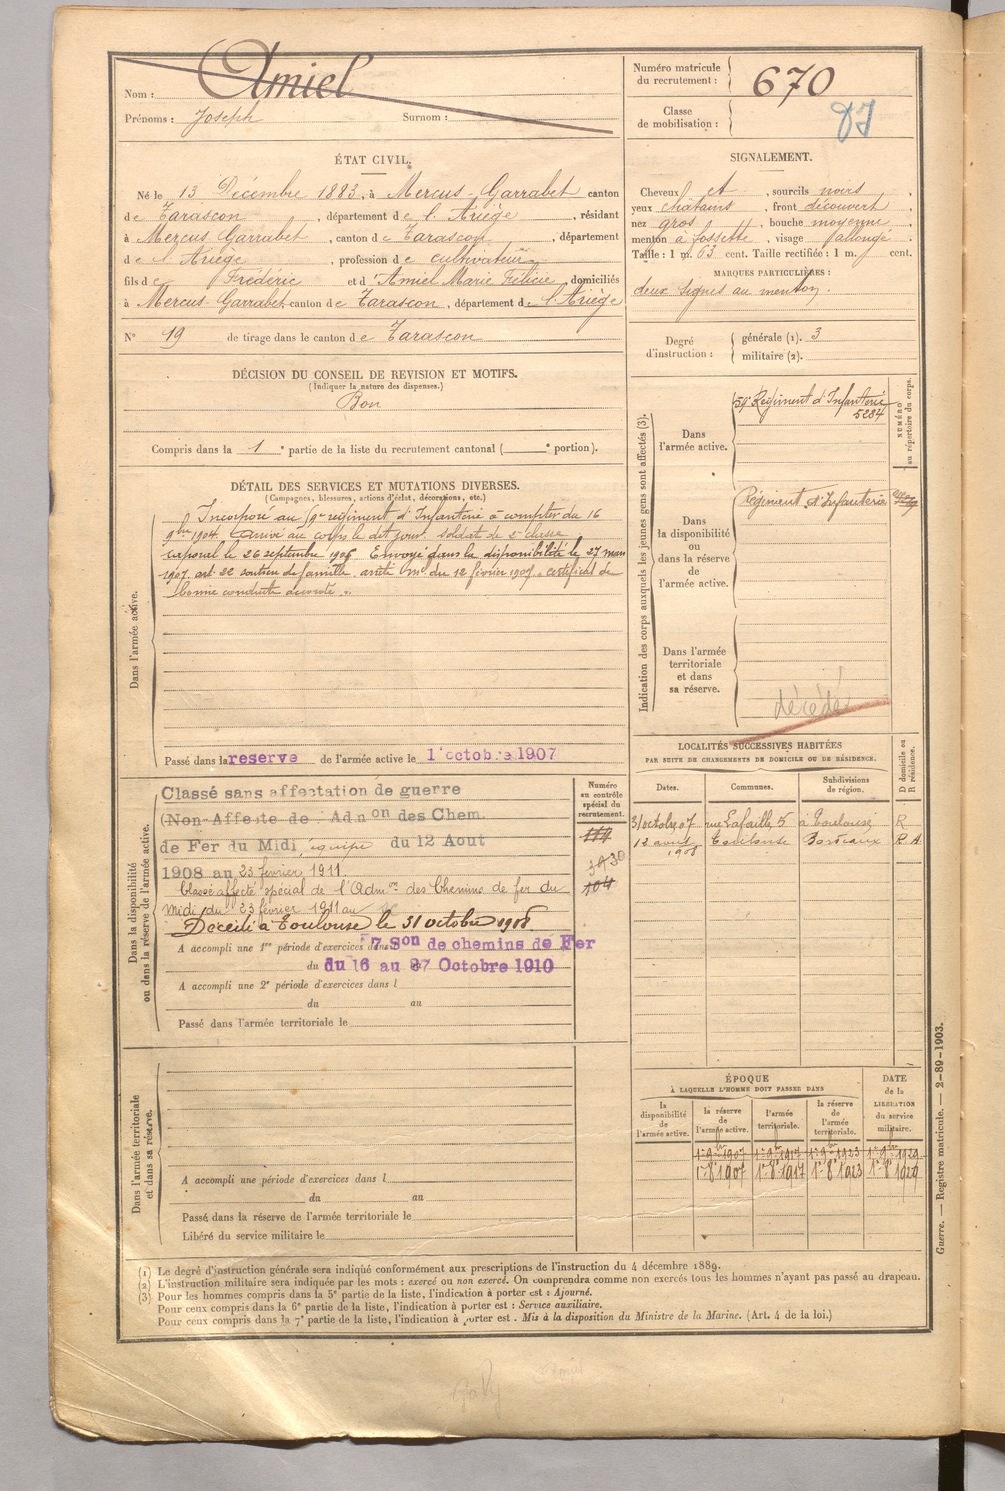 Nom : Amiel
Prénoms : Joseph Surnom :
Numéro matricule du recrutement : 670
Classe de mobilisation :
ÉTAT CIVIL.
Né le 13 Décembre 1883, à Mercus-Garrabet canton
de Tarascon, département de l'Ariège, résidant
à Mercus Garrabet, canton de Tarascon, département
de l'Ariège, profession de cultivateur
fils de Frédéric et d'Amiel Marie Félicie, domiciliés
à Mercus-Garrabet canton de Tarascon, département de l'Ariège
N° 19 de tirage dans le canton de Tarascon
SIGNALEMENT.
Cheveux et, sourcils noirs,
yeux chatains, front découvert,
nez gros, bouche moyenne,
menton à fossette, visage allongé.
Taille : 1 m. 63 cent. Taille rectifiée : 1 m. cent.
MARQUES PARTICULIÈRES :
deux signes au menton.
Degré d'instruction : générale (1). 3
militaire (2).
DÉCISION DU CONSEIL DE REVISION ET MOTIFS.
(Indiquer la nature des dispenses.)
Bon
Compris dans la 1e partie de la liste du recrutement cantonal ( e portion).
DÉTAIL DES SERVICES ET MUTATIONS DIVERSES.
(Campagnes, blessures, actions d'éclat, décorations, etc.)
Dans l'armée active.
Incorporé au 59e régiment d'Infanterie à compter du 16
9bre 1904. Arrivé au corps le dit jour. soldat de 2e classe
caporal le 26 septembre Envoyé dans la disponibilité le 27 mars
1907. art 22 soutien de famille. du 12 février 1907. certificat de
bonne conduite accordé.
Passé dans la reserve de l'armée active le 1 octobre 1907
Indication des corps auxquels les jeunes gens sont affectés (3).
NUMÉRO au répertoire du corps.
Dans l'armée active.
59e Régiment d'Infanterie
5284
Dans la disponibilité ou dans la réserve de l'armée active.
Régiment d'Infanterie
Dans l'armée territoriale et dans sa réserve.
décédé
Dans la disponibilité ou dans la réserve de l'armée active.
Numéro au contrôle spécial du recrutement.
Classé sans affectation de guerre
(Non-Affecté de Adnon des Chem.
de Fer du Midi, équipe du 12 Aout
1908 au 23 février 1911.
Classé affecté spécial de l'Admon des Chemins de fer du
midi du 23 février 1911 au
Décédé à Toulouse le 31 octobre
A accompli une 1re période d'exercices dans 7 Son de chemins de Fer
du du 16 au 27 Octobre 1910
A accompli une 2e période d'exercices dans l
du au
Passé dans l'armée territoriale le
LOCALITÉS SUCCESSIVES HABITÉES
PAR SUITE DE CHANGEMENTS DE DOMICILE OU DE RÉSIDENCE.
Dates. Communes. Subdivisions de région. D domicile ou R résidence.
31 octobre 07 rue Lafaille 5 à Toulouse R
12 aout 1908 Toulouse Bordeaux R A
Dans l'armée territoriale et dans sa réserve.
A accompli une période d'exercices dans l
du au
Passé dans la réserve de l'armée territoriale le
Libéré du service militaire le
ÉPOQUE
À LAQUELLE L'HOMME DOIT PASSER DANS
DATE de la LIBÉRATION du service militaire.
la disponibilité de l'armée active. la réserve de l'armée active. l'armée territoriale. la réserve de l'armée territoriale.
1er 9bre 1907 1er 9bre 1917 1er 9bre 1923 1er 9bre 1929
1er 8e 1907 1er 8e 1917 1er 8e 1923 1er 8e 1929
(1) Le degré d'instruction générale sera indiqué conformément aux prescriptions de l'instruction du 4 décembre 1889.
(2) L'instruction militaire sera indiquée par les mots : exercé ou non exercé. On comprendra comme non exercés tous les hommes n'ayant pas passé au drapeau.
(3) Pour les hommes compris dans la 5e partie de la liste, l'indication à porter est : Ajourné.
Pour ceux compris dans la 6e partie de la liste, l'indication à porter est : Service auxiliaire.
Pour ceux compris dans la 7e partie de la liste, l'indication à porter est : Mis à la disposition du Ministre de la Marine. (Art. 4 de la loi.)
Guerre. — Registre matricule. — 2-89-1903.